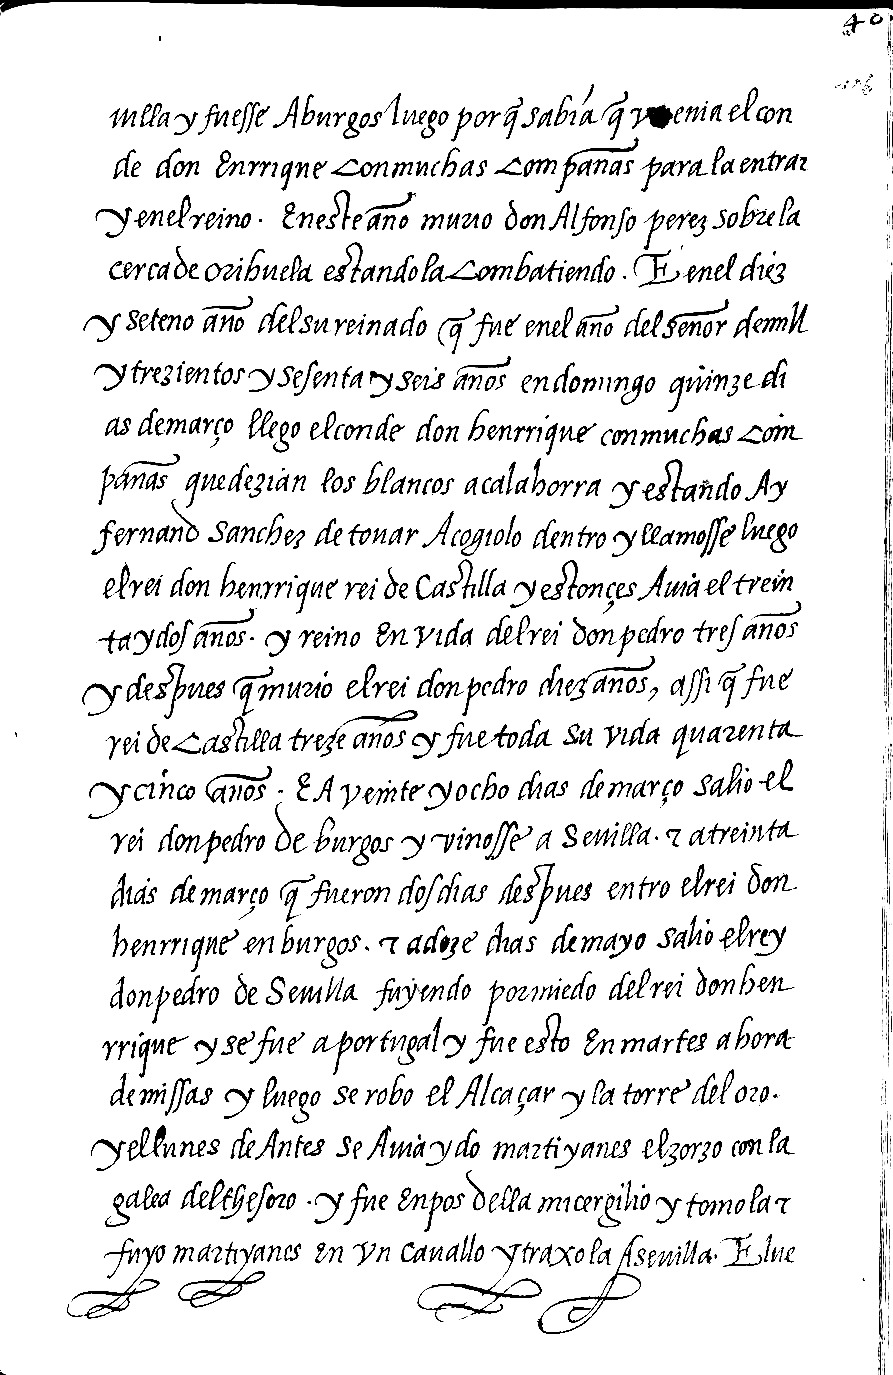 40
uilla y fuesse A burgos luego porq̃ sabia q̃ venia el con
de don Enrrique Con muchas Compañas para la entrar
y en el reino. En este año murio don Alfonso perez sobre la
cerca de orihuela estando la Combatiendo. E en el diez
y seteno año del su reinado q̃ fue en el año del señor de mill
y trezientos y sesenta y seis años en domingo quinze di
as de março llego el conde don henrrique con muchas Com
pañas que dezian los blancos a calahorra y estando Ay
fernand Sanchez de touar Acogiolo dentro y llamosse luego
el rei don henrrique rei de Castilla y estonçes Auia el trein
ta y dos años. y reino En vida del rei don pedro tres años
y despues q̃ murio el rei don pedro diez años, assi q̃ fue
rei de Castilla treze años y fue toda su vida quarenta
y cinco años. E A veinte y ocho dias de março salio el
rei don pedro de burgos y vinosse a Seuilla. ⁊ a treinta
dias de março q̃ fueron dos dias despues entro el rei don
henrrique en burgos. ⁊ a doze dias de mayo salio el rey
don pedro de Seuilla fuyendo por miedo del rei don hen
rrique y se fue a portugal y fue esto En martes a hora
de missas y luego se robo el Alcaçar y la torre del oro.
y el lunes de Antes se Auia ydo martiyanes el zorzo con la
galea del thesoro. y fue En pos della micer gilio y tomola ⁊
fuyo martiyanes En vn cauallo y traxola A seuilla. E lue